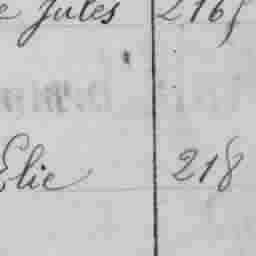 Jules 2165
Elie 218